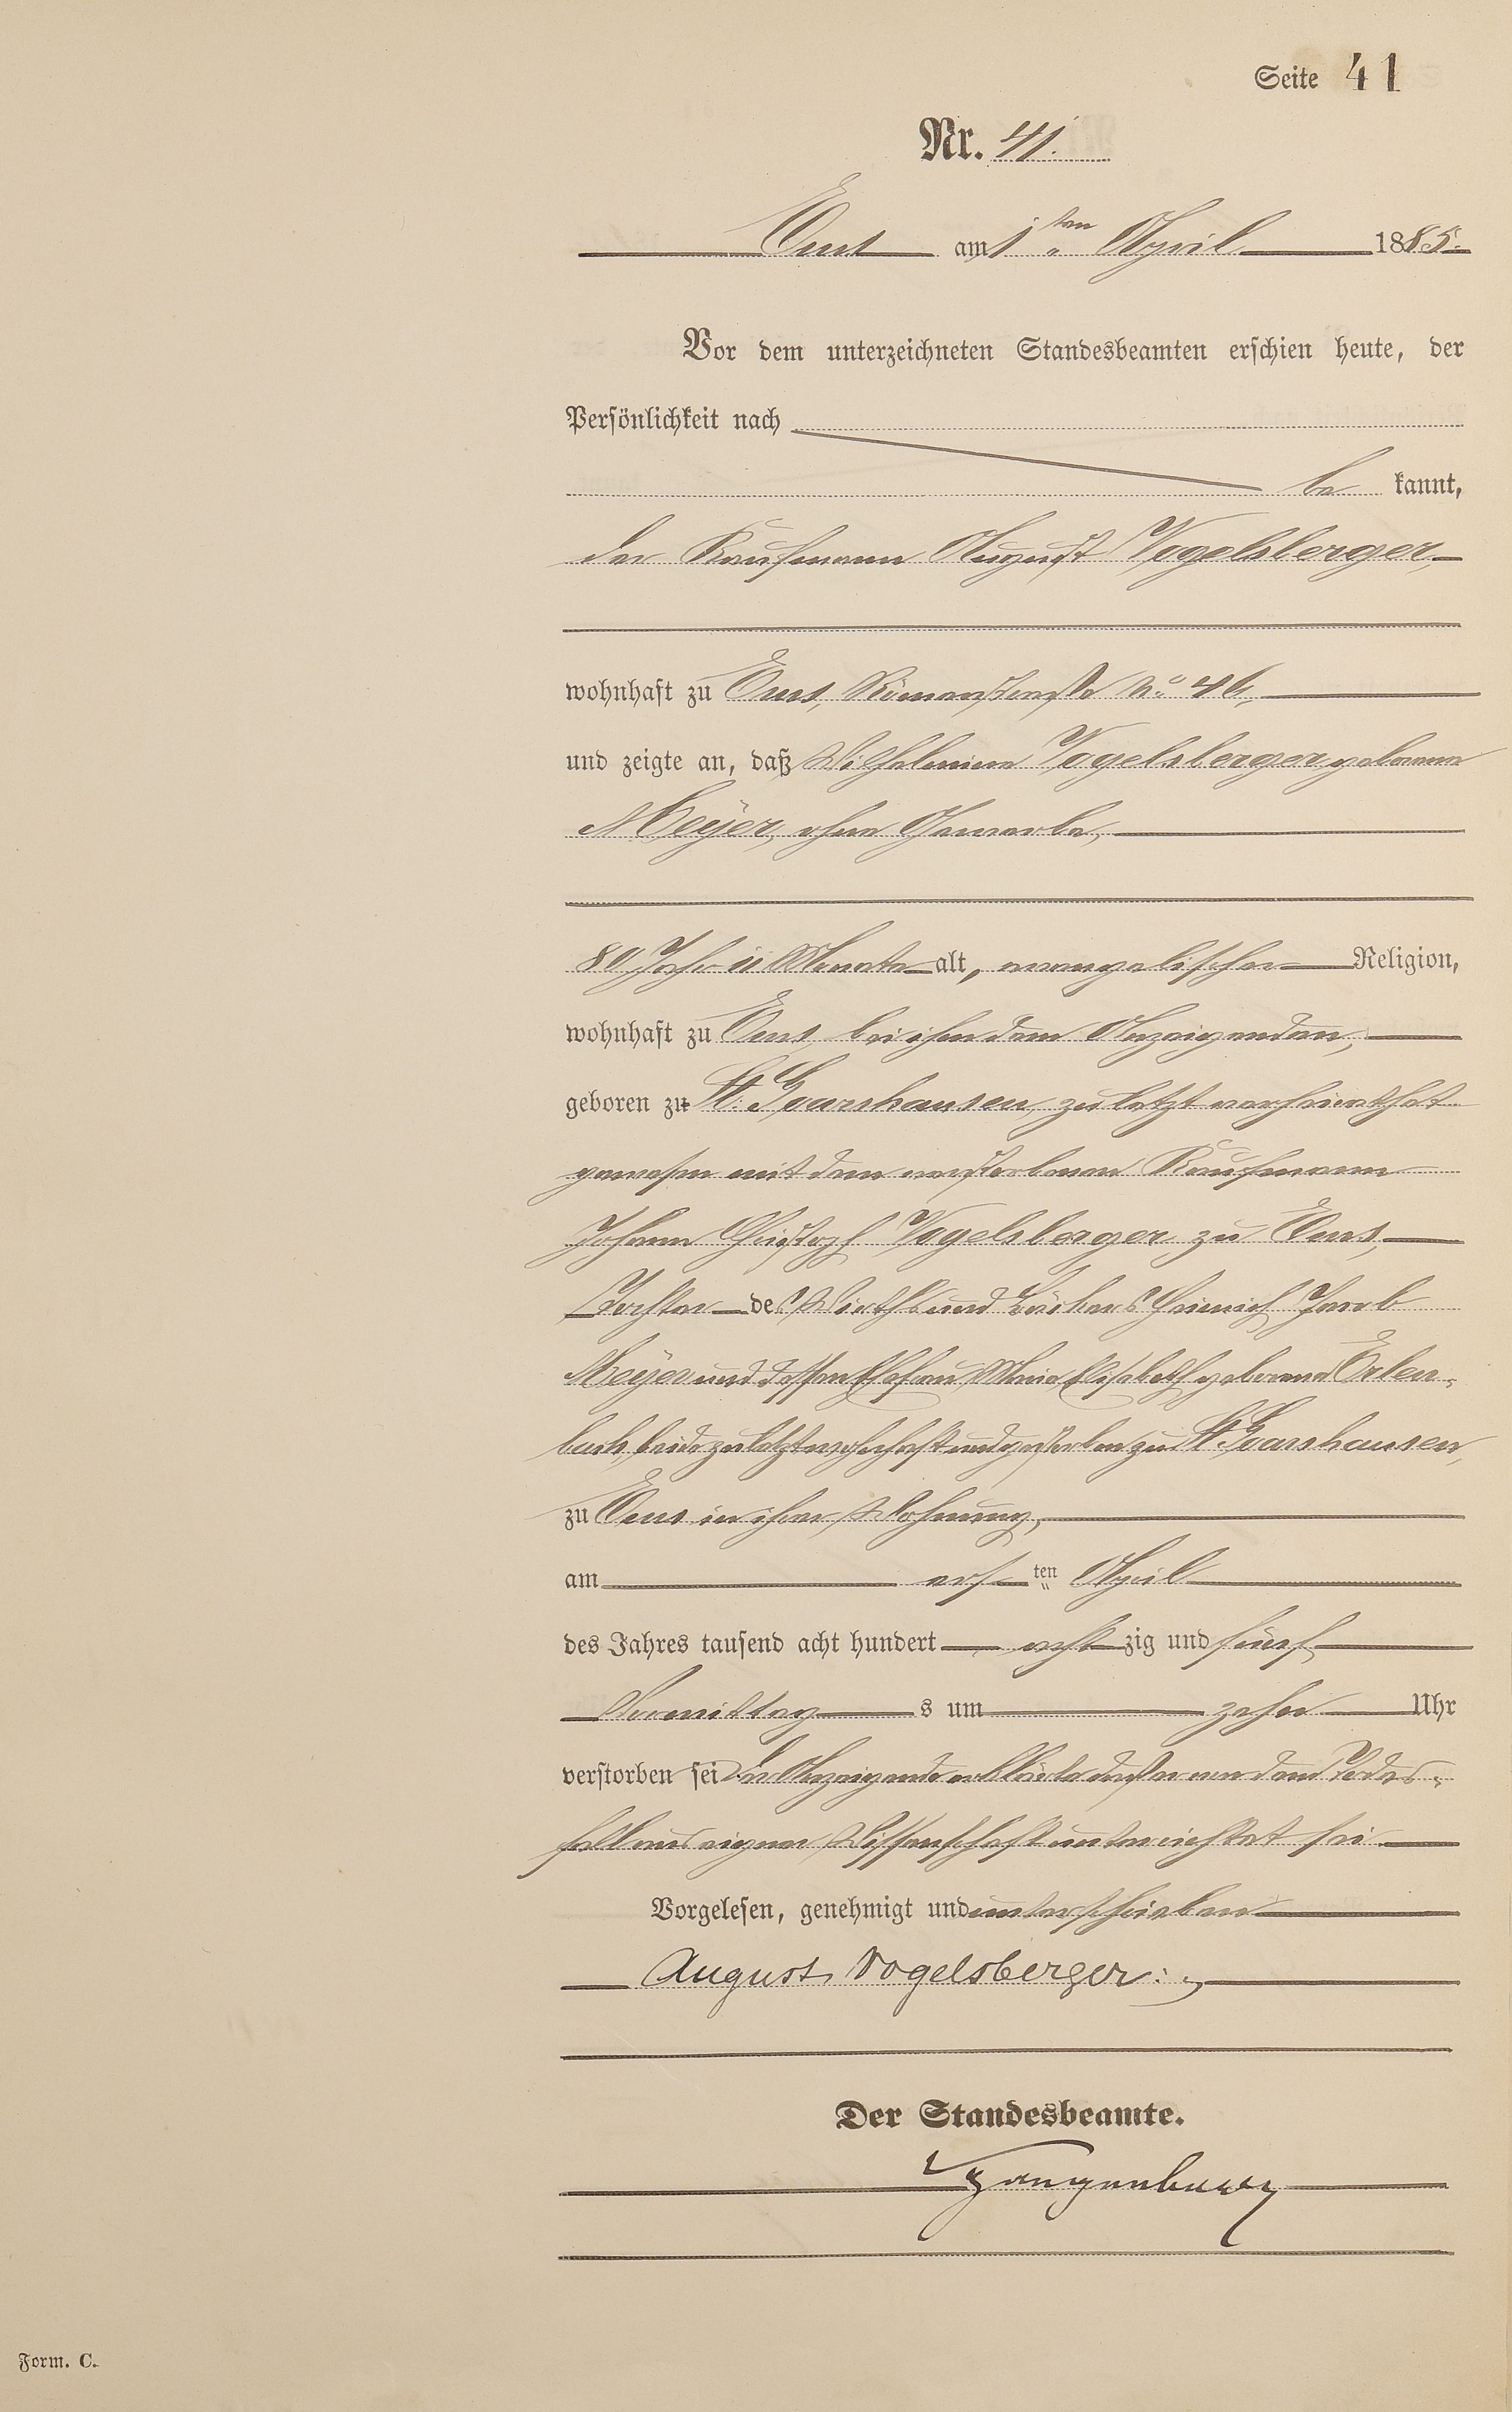 Seite 41
Nr. 41.
Ems am 1ten April 1885.
Vor dem unterzeichneten Standesbeamten erschien heute, der
Persönlichkeit nach
be kannt,
der Kaufmann August Vogelsberger,
wohnhaft zu Ems, Römerstraße No. 46,
und zeigte an, daß Wilhelmine Vogelsberger geborene
Meÿer, ohne Gewerbe,
80 Jahr 11 Monate alt, evangelischer Religion,
wohnhaft zu Ems, bei ihm dem Anzeigenden,
geboren zu St. Goarshausen, zuletzt verheirathet
gewesen mit dem verstorbenen Kaufmann
Johann Christoph Vogelsberger zu Ems,
Tochter des Wirths und Bäckers Heinrich Jacob
Meÿer und dessen Ehefrau Maria Elisabeth geborene Erlen-
bach, beide zuletzt wohnhaft und gestorben zu St. Goarshausen,
zu Ems in ihrer Wohnung,
am ersten April
des Jahres tausend acht hundert achtzig und fünf
Vormittags um zehn Uhr
verstorben sei. Der Anzeigende erklärte daß er von dem Todes-
fall aus eigener Wissenschaft unterrichtet sei
Vorgelesen, genehmigt und unterschrieben
August Vogelsberger.
Der Standesbeamte.
Form. C.